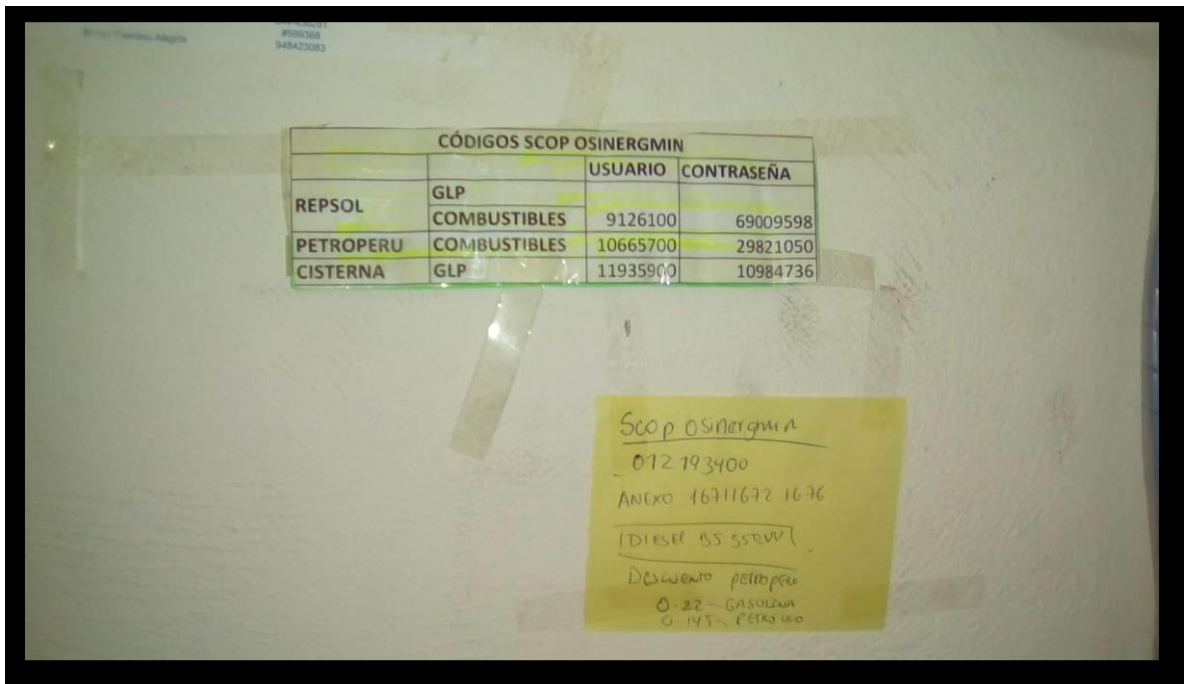 #599368
948423083
CÓDIGOS SCOP OSINERGMIN
USUARIO CONTRASEÑA
REPSOL GLP
COMBUSTIBLES 9126100 69009598
PETROPERU COMBUSTIBLES 10665700 29821050
CISTERNA GLP 11935900 10984736
Scop osinergmin
012193400
ANEXO 1671 1672 1676
DIESEL B5
DESCUENTO PETROPERU
0.22 - GASOLINA
0.145 - PETROLEO